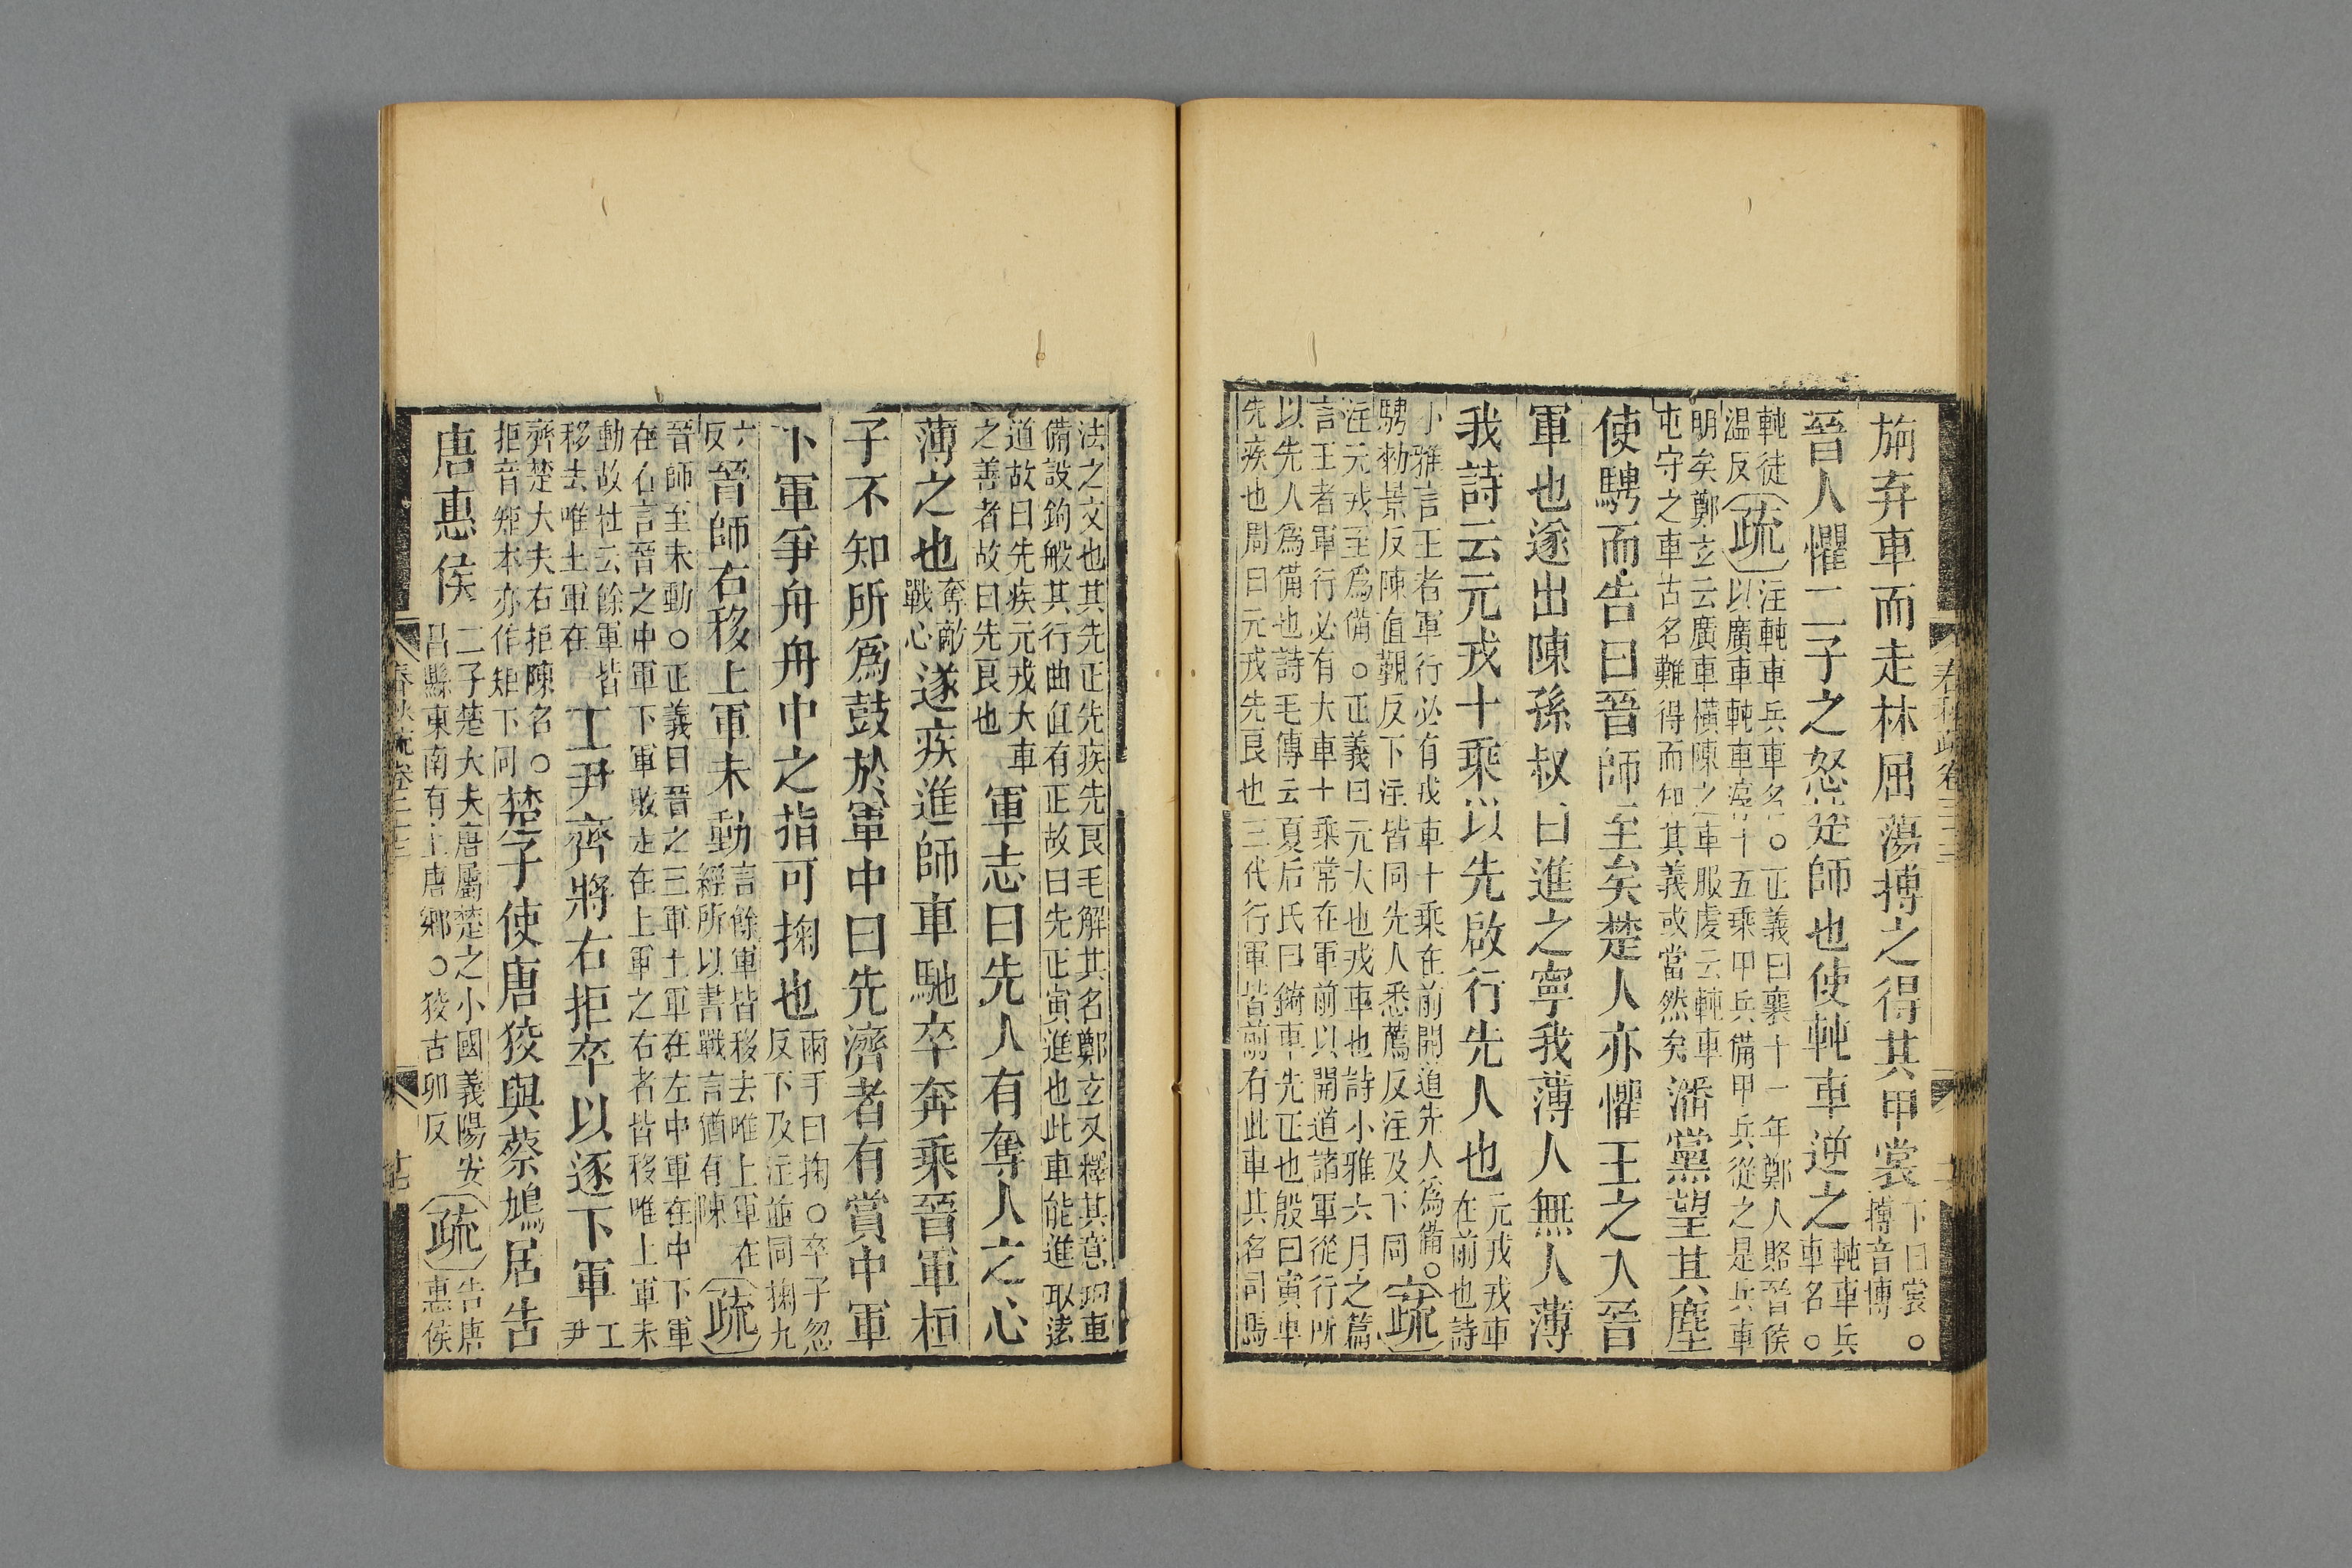 旃弃車而走林屈蕩搏之得其甲裳下曰裳○搏音博
晉人懼二子之怒楚師也使軘車逆之軘車兵車名○
軘徒温反疏注軘車兵車名○正義曰襄十一年鄭人賂晉侯以廣車軘車淳十五乘甲兵備甲兵從之是兵車
明矣鄭玄云廣車橫陳之車服虔云軘車屯守之車古名難得而知其義或當然矣潘黨望其塵
使騁而告曰晉師至矣楚人亦懼王之入晉
軍也遂出陳孫叔曰進之寧我薄人無人薄
我詩云元戎十乘以先啟行先人也元戎戎車在前也詩
小雅言王者軍行必有戎車十乘在前開道先人為備○騁勑景反陳直覲反下注皆同先人悉薦反注及下同疏
注元戎至為備○正義曰元大也戎車也詩小雅六月之篇言王者軍行必有大車十乘常在軍前以開道諸軍從行所
以先人爲備也詩毛傳云夏后氏曰鉤車先正也殷曰寅車先疾也周曰元戎先良也三代行軍皆前有此車其名司馬
春秋疏卷二十三
法之文也其先正先疾先良毛解其名鄭玄又釋其意鉤車備設鉤般其行曲直有正故曰先正寅進也此車能進取遠
道故曰先疾元戎大車之善者故曰先良也軍志曰先人有奪人之心
薄之也奪敵戰心遂疾進師車馳卒奔乘晉軍桓
子不知所爲鼓於軍中曰先濟者有賞中軍
下軍爭舟舟中之指可掬也兩手曰掬○卒子忽反下及注並同掬九
六反晉師右移上軍未動言餘軍皆移去唯上軍在經所以書戰言猶有陳疏
晉師至未動○正義曰晉之三軍上軍在左中軍在中下軍在右言晉之中軍下軍敗走在上軍之右者皆移唯上軍未
動故杜云餘軍皆移去唯上軍在工尹齊將右拒卒以逐下軍工尹
齊楚大夫右拒陳名○拒音矩本亦作矩下同楚子使唐狡與蔡鳩居告
唐惠侯二子楚大夫唐屬楚之小國義陽安昌縣東南有上唐鄉○狡古卯反疏告唐惠侯
春秋疏卷二十三